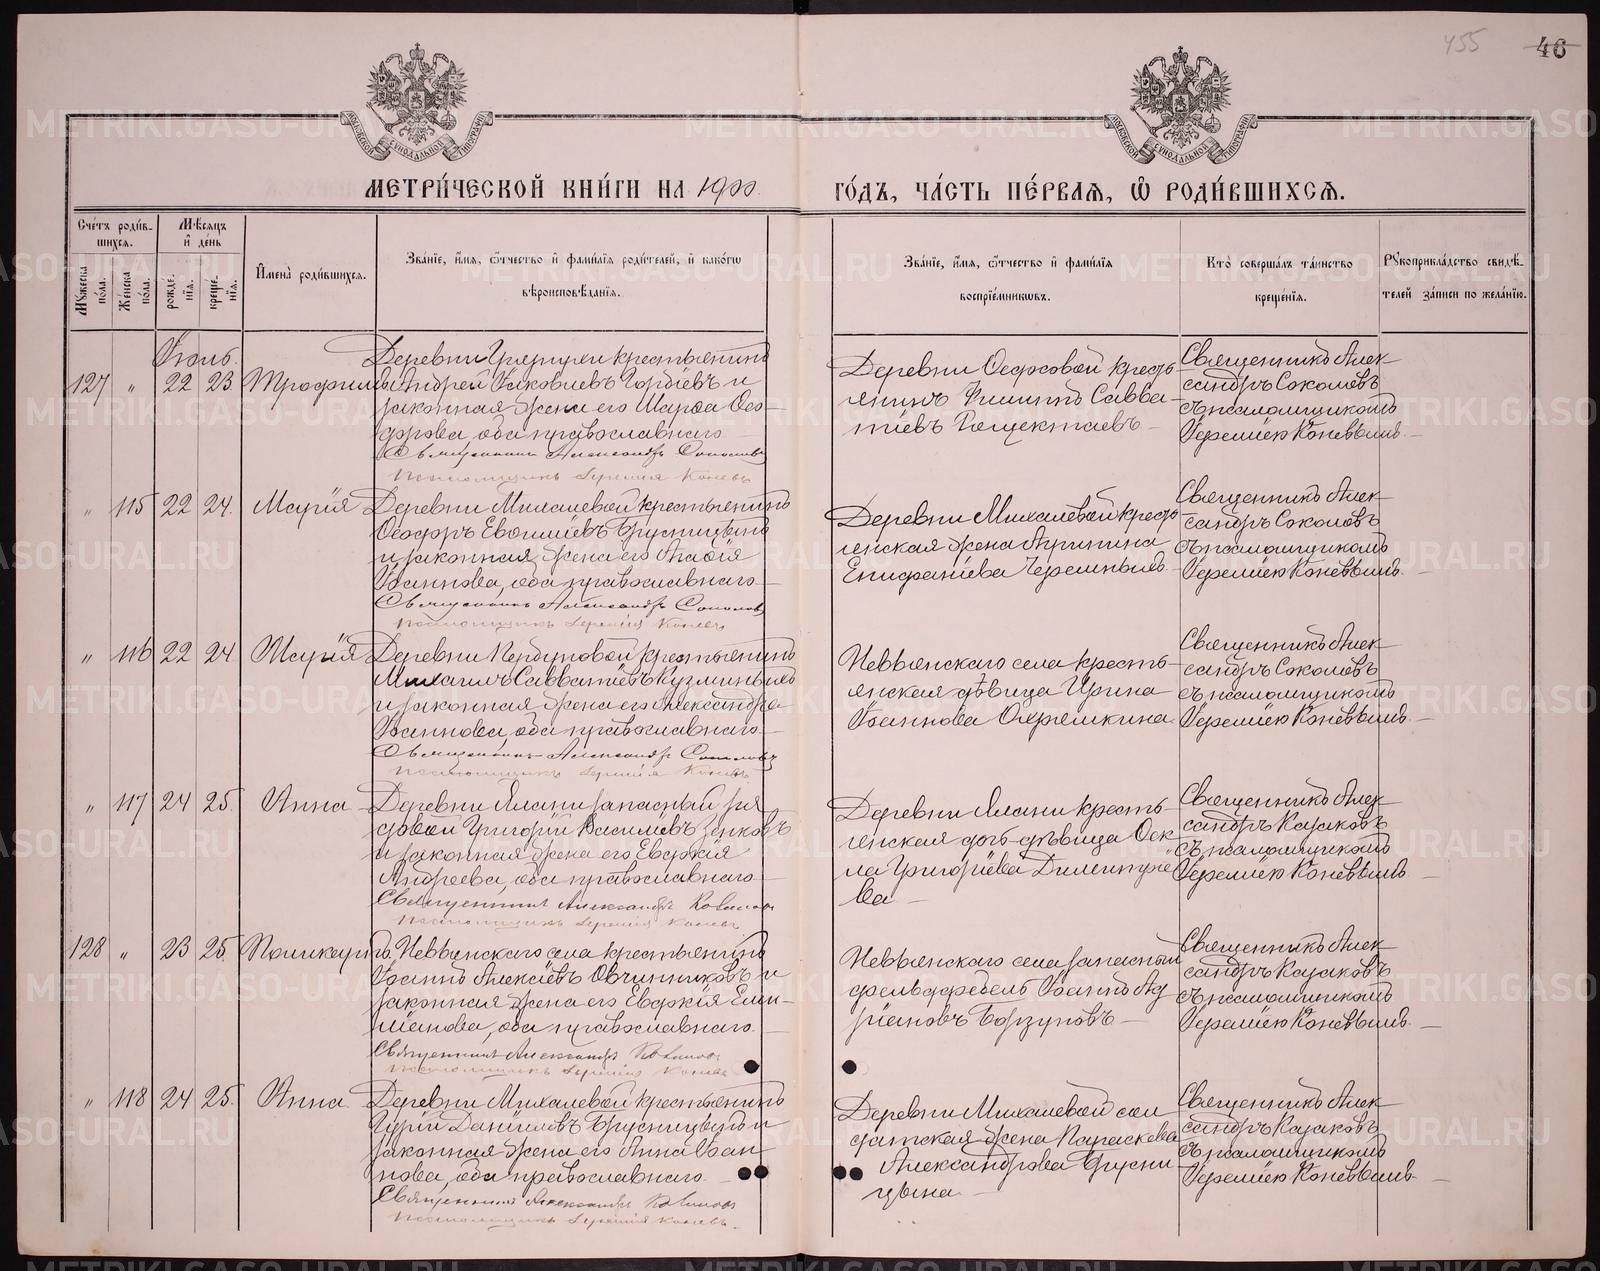 455 46
МЕТРИ́ЧЕСКОЙ КНИ́ГИ НА 1900
ГО́ДЪ, ЧА́СТЬ ПЕ́РВАѦ, Ѡ РОДИ́ВШИХСѦ.
Сче́тъ роди́в-
шихсѧ.
Мꙋ́жеска по́ла.
Же́нска по́ла.
Мѣ́сѧцъ
и҆ де́нь
рожде́нїѧ.
креще́нїѧ.
И҆мена̀ роди́вшихсѧ.
Зва́нїе, и҆́мѧ, ѻ҆́тчество и҆ фами́лїѧ роди́телей, и҆ како́гѡ
вѣроисповѣ́данїѧ.
Зва́нїе, и҆́мѧ, ѻ҆́тчество и҆ фами́лїѧ
воспрїе́мникѡвъ.
Кто̀ соверша́лъ та́инство
креще́нїѧ.
Рꙋкоприкла́дство свидѣ́-
телей за́писи по жела́нїю.
Іюль.
127 " 22 23 Трофимъ
Деревни крестьянинъ
Андрей Іаковлевъ Гордѣевъ и
законная жена его Марѳа Ѳео-
дорова, оба православнаго
Священникъ Александръ Соколовъ
Псаломщикъ Іеремія Коневъ
Деревни Ѳедосовой кресть-
янинъ Филиппъ Савва-
тіевъ
Священникъ Алек-
сандръ Соколовъ
съ псаломщикомъ
Іереміею Коневымъ.
" 115 22 24. Марія
Деревни Михалевой крестьянинъ
Ѳеодоръ Евѳиміевъ Брусницынъ
и законная жена его Агаѳія
Іоаннова, оба православнаго
Священникъ Александръ Соколовъ
Псаломщикъ Іеремія Коневъ
Деревни Михалевой кресть-
янская жена Агрипина
Епифаніева Черемныхъ
Священникъ Алек-
сандръ Соколовъ
съ псаломщикомъ
Іереміею Коневымъ.
" 116 22 24 Марія
Деревни крестьянинъ
Михаилъ Савватіевъ Кузминыхъ
и законная жена его Александра
Іоаннова, оба православнаго
Священникъ Александръ Соколовъ
Псаломщикъ Іеремія Коневъ
Невьянскаго села кресть-
янская дѣвица Ирина
Іоаннова Охремкина
Священникъ Алек-
сандръ Соколовъ
съ псаломщикомъ
Іереміею Коневымъ.
" 117 24 25. Анна
Деревни Ялани запасный ря-
довой Григорій Василіевъ Зенковъ
и законная жена его Евдокія
Андреева, оба православнаго
Священникъ Александръ Казаковъ
Псаломщикъ Іеремія Коневъ
Деревни Ялани кресть-
янская дочь дѣвица Ѳек-
ла Григоріева
ва
Священникъ Алек-
сандръ Казаковъ
съ псаломщикомъ
Іереміею Коневымъ
128 " 23 25. Поликарпъ
Невьянскаго села крестьянинъ
Іоаннъ Алексіевъ Овчинниковъ и
законная жена его Евдокія Еми-
ліанова, оба православнаго
Священникъ Александръ Казаковъ
Псаломщикъ Іеремія Коневъ
Невьянскаго села запасный
фельдфебель Іоаннъ Ад-
ріановъ Борзуновъ
Священникъ Алек-
сандръ Казаковъ
съ псаломщикомъ
Іереміею Коневымъ.
" 118 24 25. Анна
Деревни Михалевой крестьянинъ
Гурій Даніиловъ Брусницынъ и
законная жена его Анна Іоан-
нова, оба православнаго
Священникъ Александръ Казаковъ
Псаломщикъ Іеремія Коневъ.
Деревни Михалевой сол-
датская жена Параскева
Александрова Брусни-
цына
Священникъ Алек-
сандръ Казаковъ
съ псаломщикомъ
Іереміею Коневымъ.
METRIKI.GASO-URAL.RU